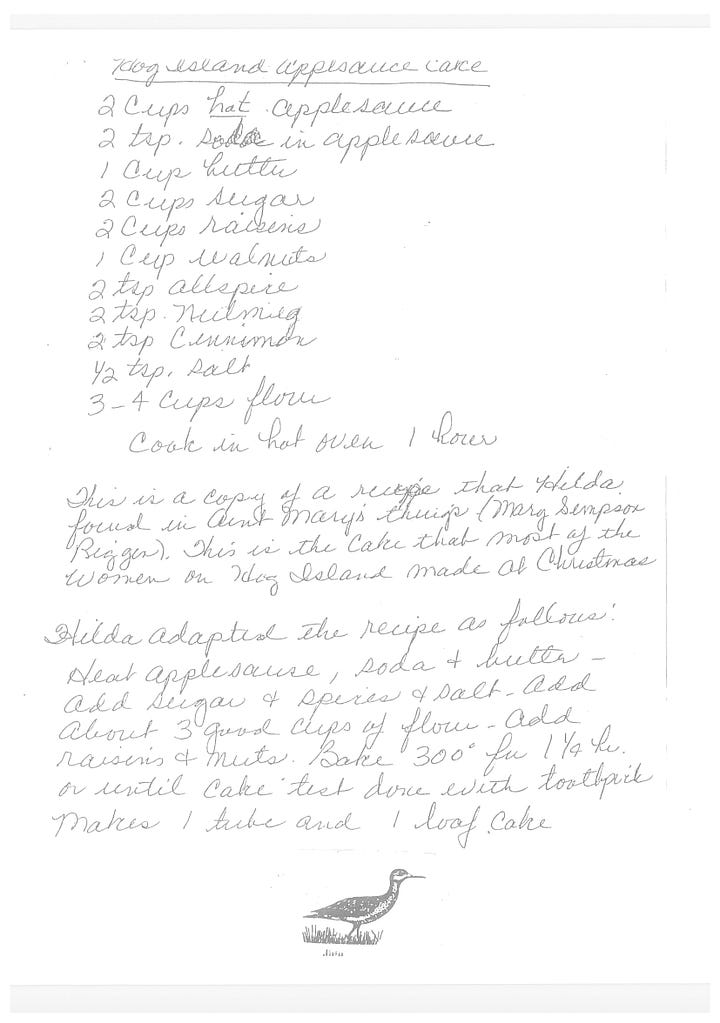 Hog Island Applesauce Cake
2 Cups hot applesauce
2 tsp. soda in applesauce
1 Cup butter
2 Cups sugar
2 Cups raisins
1 Cup walnuts
2 tsp allspice
2 tsp. Nutmeg
2 tsp Cinnimon
1/2 tsp. salt
3-4 Cups flour
Cook in hot oven 1 hour
This is a copy of a recipe that Hilda
found in Aunt Mary's things (Mary Simpson
Bigger). This is the Cake that most of the
Women on Hog Island made at Christmas
Hilda adapted the recipe as follows:
Heat applesause, soda & butter -
add sugar & spices & salt - add
about 3 good cups of flour - add
raisins & nuts. Bake 300° for 1 1/4 hr.
or until cake test done with toothpick
Makes 1 tube and 1 loaf cake